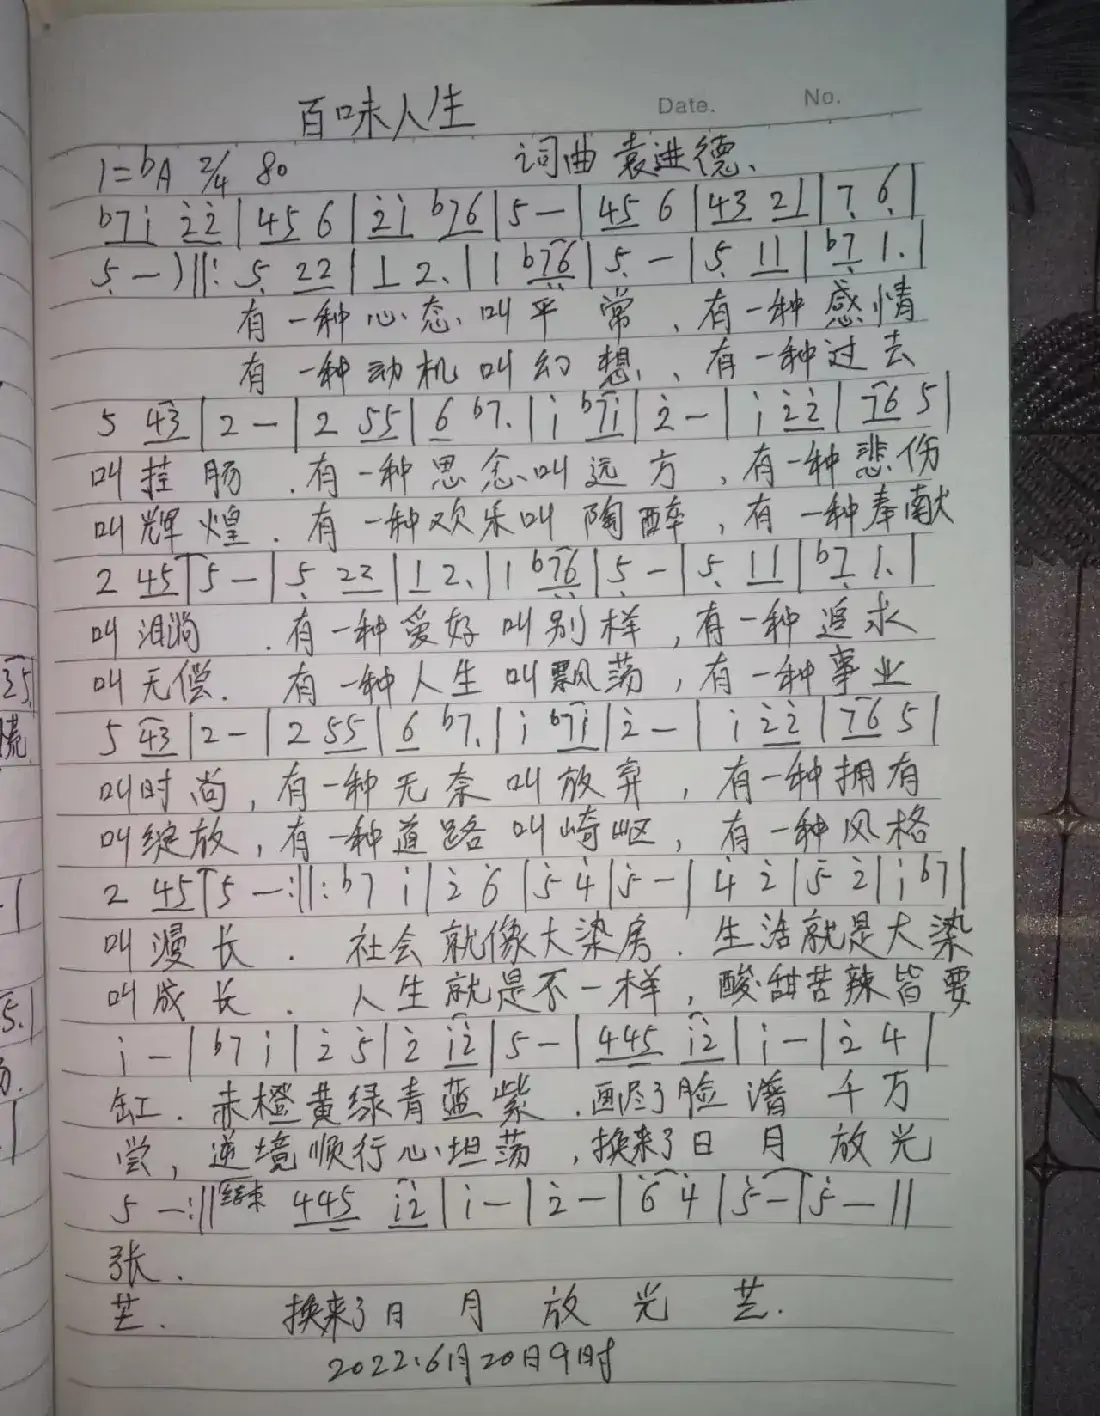 百味人生
Date. No.
1=ᵇA 2/4 80 词曲 袁进德、
ᵇ7 i 2 2 | 4 5 6 | 2 i ᵇ7 6 | 5 — | 4 5 6 | 4 3 2 1 | 7 6. |
5 — ) ‖: 5 2 2 | 1 2. | 1 ᵇ7 6 | 5 — | 5 1 1 | ᵇ7 1. |
有一种心态叫平常、有一种感情
有一种动机叫幻想、有一种过去
5 4 3 | 2 — | 2 5 5 | 6 ᵇ7. | i ᵇ7 i | 2 — | i 2 2 | 7 6 5 |
叫挂肠.有一种思念叫远方,有一种悲伤
叫辉煌.有一种欢乐叫陶醉,有一种奉献
2 4 5 | 5 — | 5 2 2 | 1 2. | 1 ᵇ7 6 | 5 — | 5 1 1 | ᵇ7 1. |
叫泪淌.有一种爱好叫别样,有一种追求
叫无偿.有一种人生叫飘荡,有一种事业
5 4 3 | 2 — | 2 5 5 | 6 ᵇ7. | i ᵇ7 i | 2 — | i 2 2 | 7 6 5 |
叫时尚,有一种无奈叫放弃,有一种拥有
叫绽放,有一种道路叫崎岖,有一种风格
2 4 5 | 5 — :‖: ᵇ7 i | 2 6 | 5 4 | 5 — | 4 2 | 5 2 | i ᵇ7 |
叫漫长.社会就像大染房.生活就是大染
叫成长.人生就是不一样,酸甜苦辣皆要
i — | ᵇ7 i | 2 5 | 2 i 2 | 5 — | 4 4 5 i 2 | i — | 2 4 |
缸.赤橙黄绿青蓝紫.画尽了脸谱千万
尝,逆境顺行心坦荡,换来了日月放光
5 — :‖ 结束 4 4 5 i 2 | i — | 2 — | 6 4 | 5 — | 5 — ‖
张.
芒. 换来了日月放光芒.
2022.6月20日9时